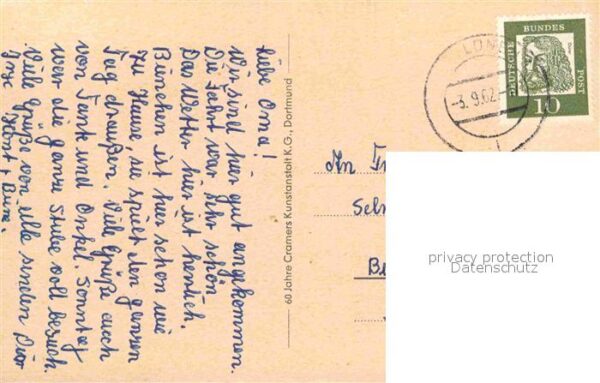 Liebe Oma!
Wir sind hier gut angekommen.
Die Fahrt war sehr schön.
Das Wetter hier ist herrlich.
Bienchen ist hier schon wie
zu Hause, sie spielt den ganzen
Tag draußen. Viele Grüße auch
von Tante und Onkel. Sonntag
war die ganze Stube voll Besuch.
Viele Grüße von alle senden Dir
Inge Horst + Biene.
60 Jahre Cramers Kunstanstalt K.G., Dortmund
An Fr
Sel
B
DEUTSCHE
BUNDES
POST
10
-3.9.62
privacy protection
Datenschutz